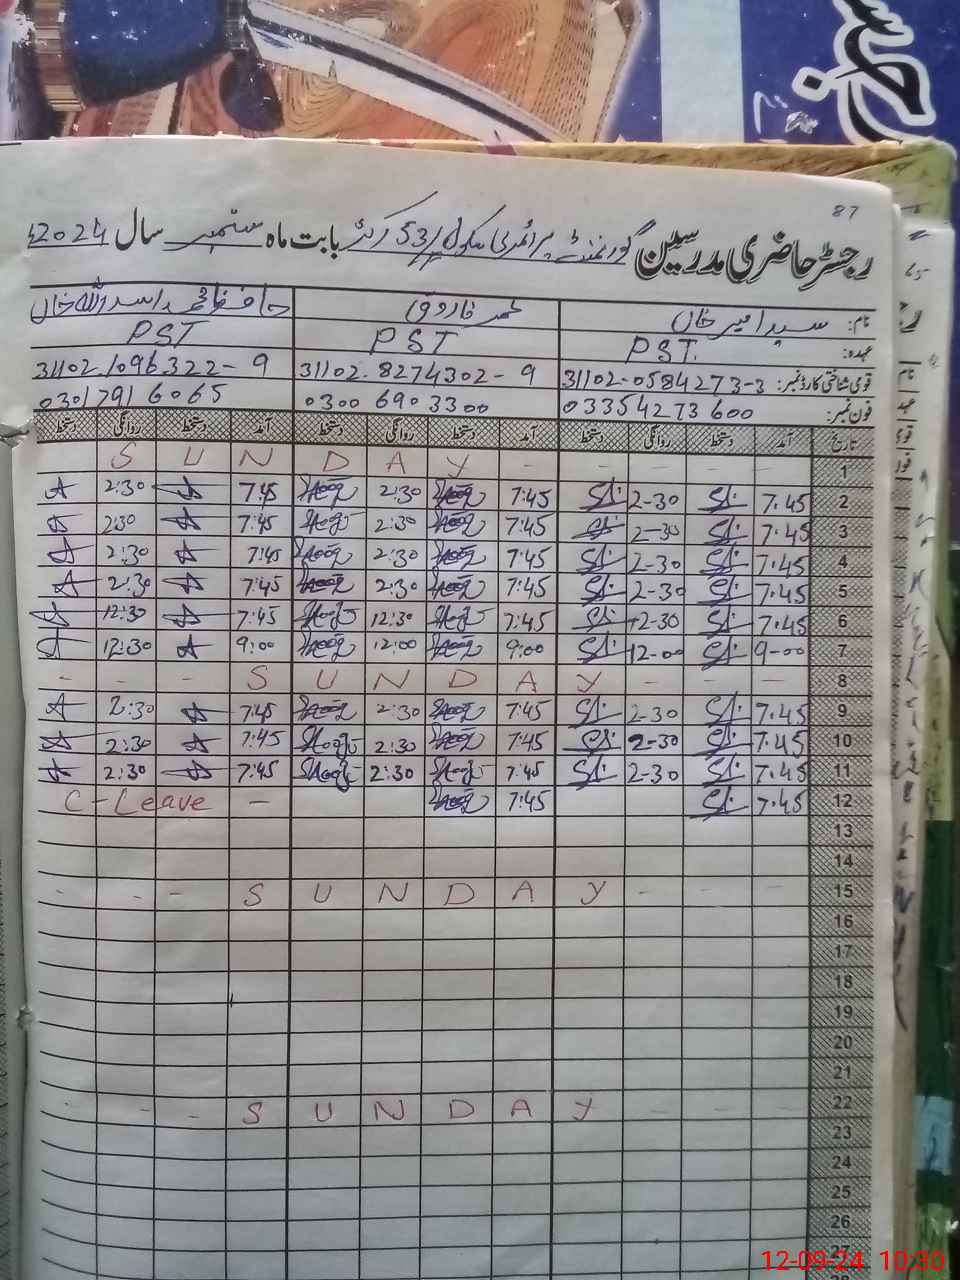 87
رجسٹر حاضری مدرسین گورنمنٹ پرائمری سکول 53/ بابت ماہ ستمبر سال 2024ء
نام: سید امیر خان عمر فاروق حافظ محمد اسد اللہ خان
عہدہ: PST. PST PST
قومی شناختی کارڈ نمبر: 31102-0584273-3 31102-8274302-9 31102-1096322-9
فون نمبر: 03354273600 0300 6903300 03017916065
تاریخ آمد دستخط روانگی دستخط آمد دستخط روانگی دستخط آمد دستخط روانگی دستخط
1 - - - - S U N D A Y
2 7.45 2-30 7:45 2:30 7:45 2:30
3 7.45 2-30 7:45 2:30 7:45 2:30
4 7.45 2-30 7:45 2:30 7:45 2:30
5 7.45 2-30 7:45 2:30 7:45 2:30
6 7.45 12-30 7:45 12:30 7:45 12:30
7 9-00 12-00 9:00 12:00 9:00 12:30
8 - - - S U N D A Y - - -
9 7.45 2-30 7:45 2:30 7:45 2:30
10 7.45 2-30 7:45 2:30 7:45 2:30
11 7.45 2-30 7:45 2:30 7:45 2:30
12 7.45 7:45 C-Leave -
13
14
15 - - - S U N D A Y - - -
16
17
18
19
20
21
22 - - - S U N D A Y - - -
23
24
25
26
27
12-09-24 10:30